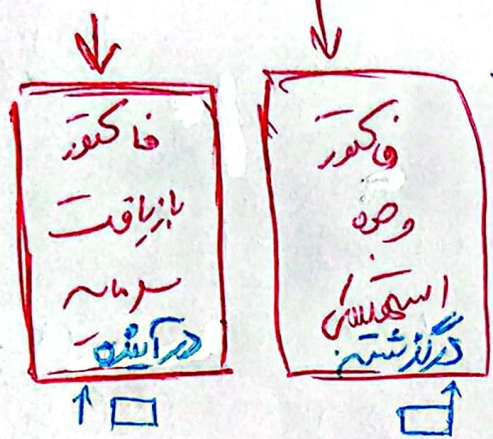 فاکتور
وجوه
استهلاکی
در گذشته
فاکتور
بازیافت
سرمایه
در آینده